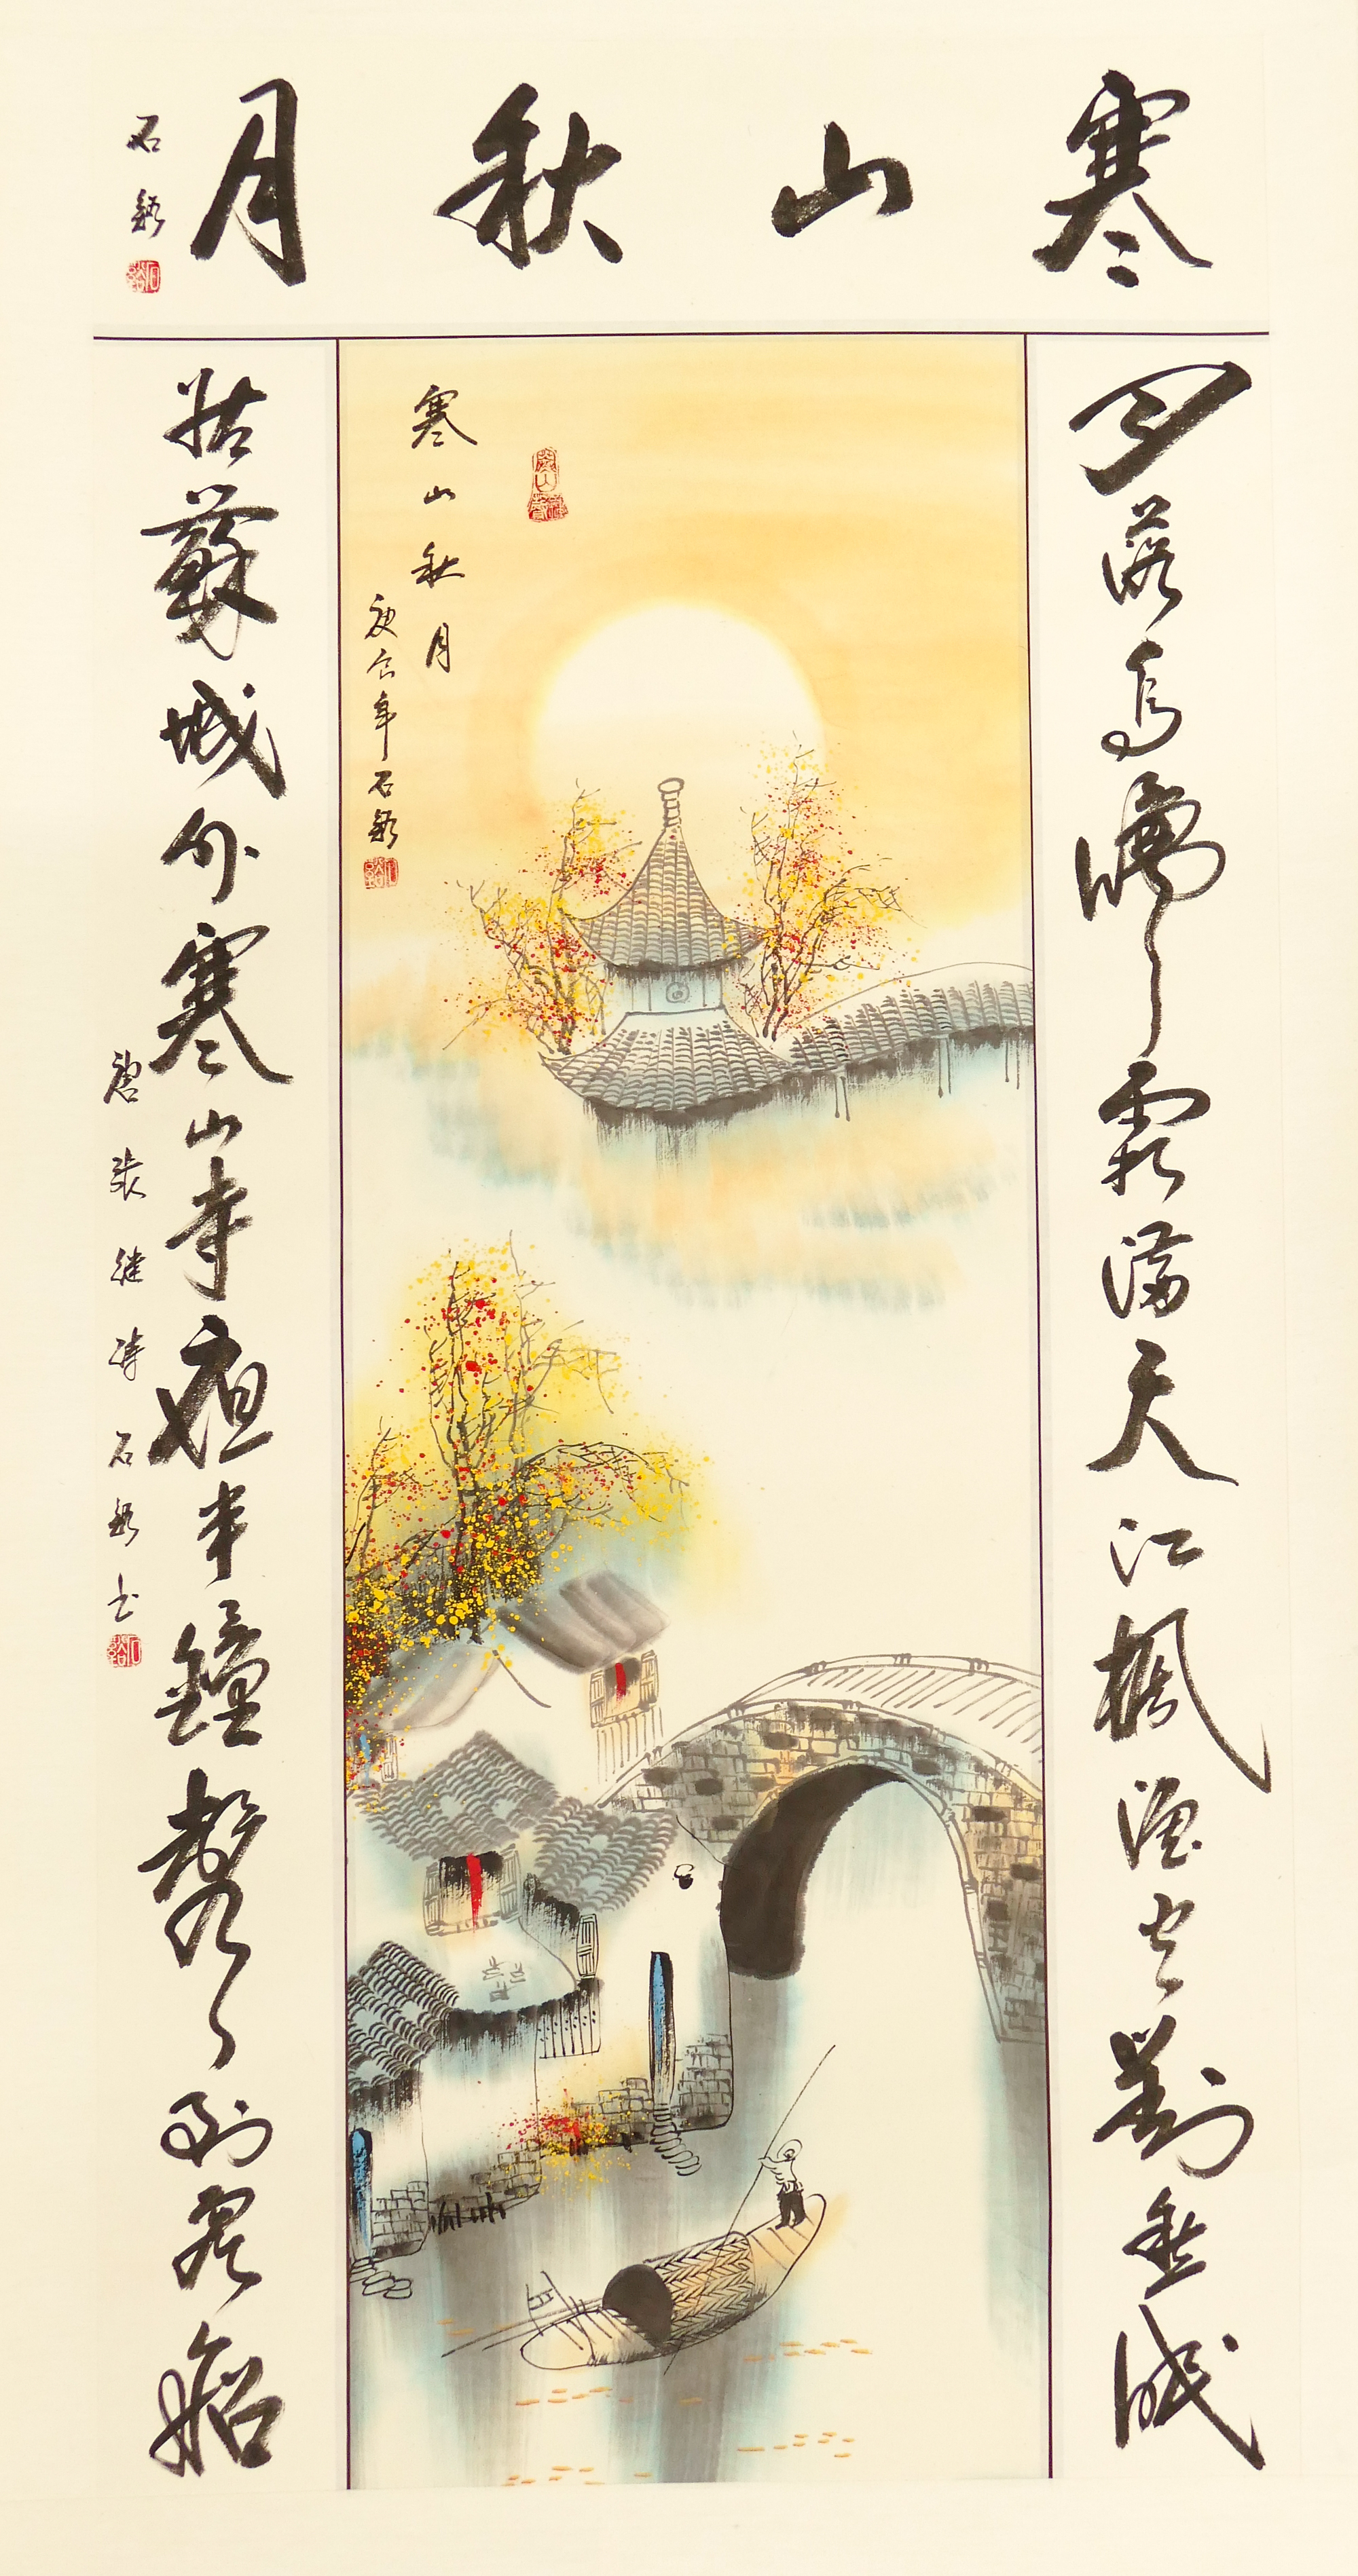 寒山秋月
石谿
月落烏啼霜滿天江楓漁火對愁眠
寒山秋月
年石谿
姑蘇城外寒山寺夜半鐘聲到客船
唐張继诗石谿书